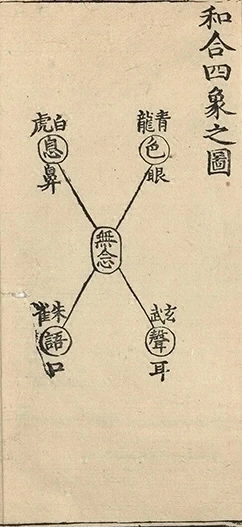 和合四象之圖
青龍
色
眼
白虎
息
鼻
無念
玄武
聲
耳
朱雀
語
口